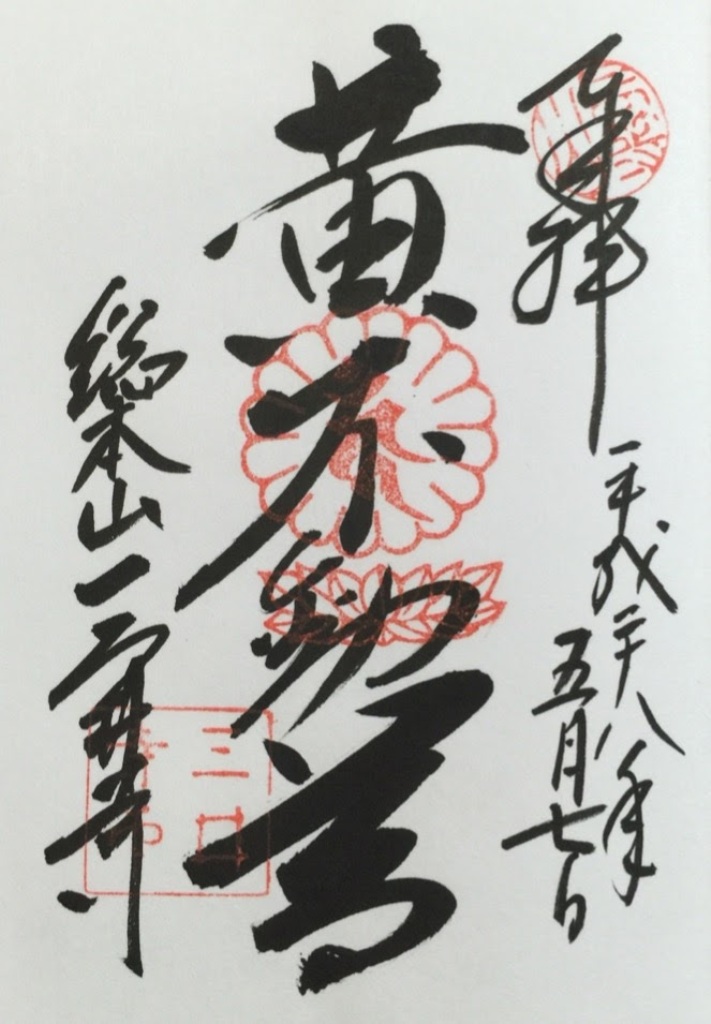 奉拝
平成二十八年
五月七日
黄不動尊
総本山三井寺
三井
寺印